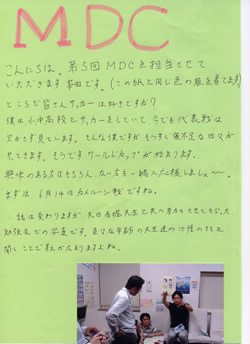 MDC
こんにちは。第5回MDCを担当させて
いただきます 田です。(この紙と同じ色の服を着てます)
ところで皆さんサッカーは好きですか?
僕は小中高校とサッカーをしていて、今でも代表戦は
欠かさず見ています。そんな僕ですが もうすぐ寝不足な日々が
やってきます。もうすぐワールドカップが始まります。
興味のある方はもちろん、ない方も一緒に応援しましょ〜。
まずは、6月14日カメルーン戦ですね。
話は変わりますが、先日 先生と見に 行かせてもらった
勉強会での写真です。色々な年齢の先生達の治療の話を
聞くことで刺激になりますよね。